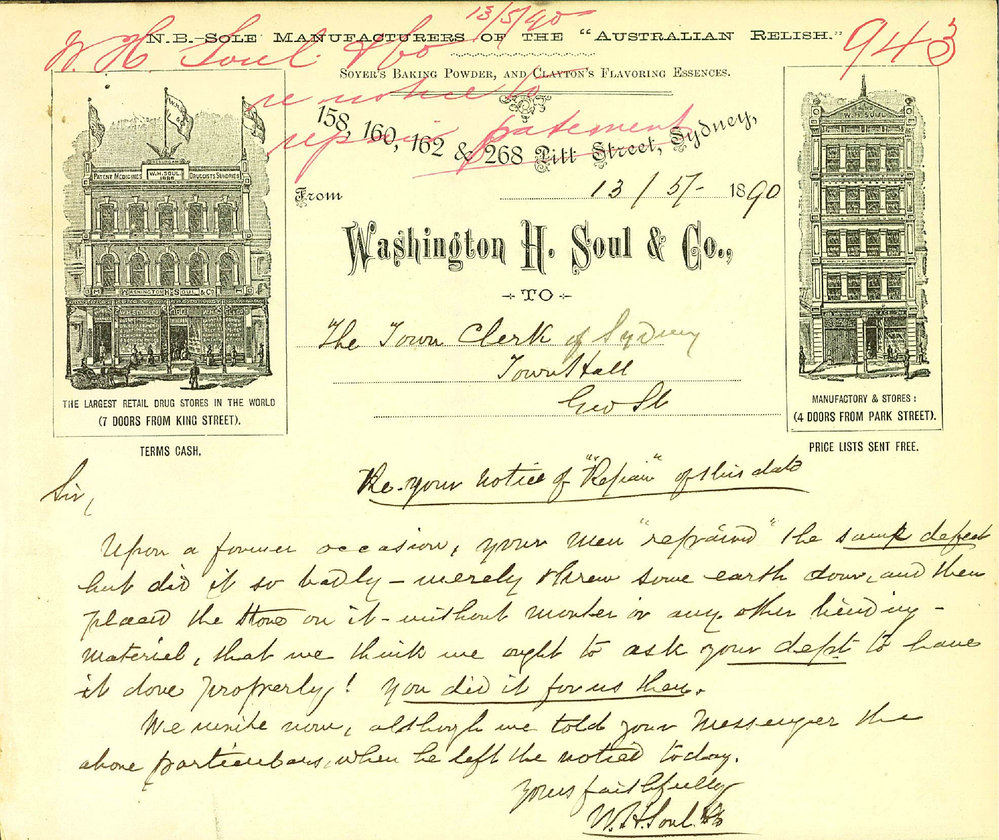 13/5/90
N.B.—Sole Manufacturers of the "Australian Relish."
W. H. Soul & Co
943
Soyer's Baking Powder, and Clayton's Flavoring Essences.
re notice to
repair pavement
158, 160, 162 & 268 Pitt Street, Sydney,
From 13/5/- 1890
Washington H. Soul & Co.,
TO
The Town Clerk of Sydney
Town Hall
Geo St
PATENT MEDICINES
W.H. SOUL
DRUGGISTS SUNDRIES
WASHINGTON H. SOUL & CO.
THE LARGEST RETAIL DRUG STORES IN THE WORLD
(7 DOORS FROM KING STREET).
TERMS CASH.
W.H. SOUL
MANUFACTORY & STORES:
(4 DOORS FROM PARK STREET).
PRICE LISTS SENT FREE.
Re your notice of "Repair" of this date
Sir,
Upon a former occasion, your men "repaired" the same defect
but did it so badly – merely threw some earth down, and then
placed the stone on it – without mortar or any other binding –
material, that we think we ought to ask your dept to have
it done properly! You did it for us then.
We write now, although we told your Messenger the
above particulars, when he left the notice today.
Yours faithfully
W.H. Soul & Co